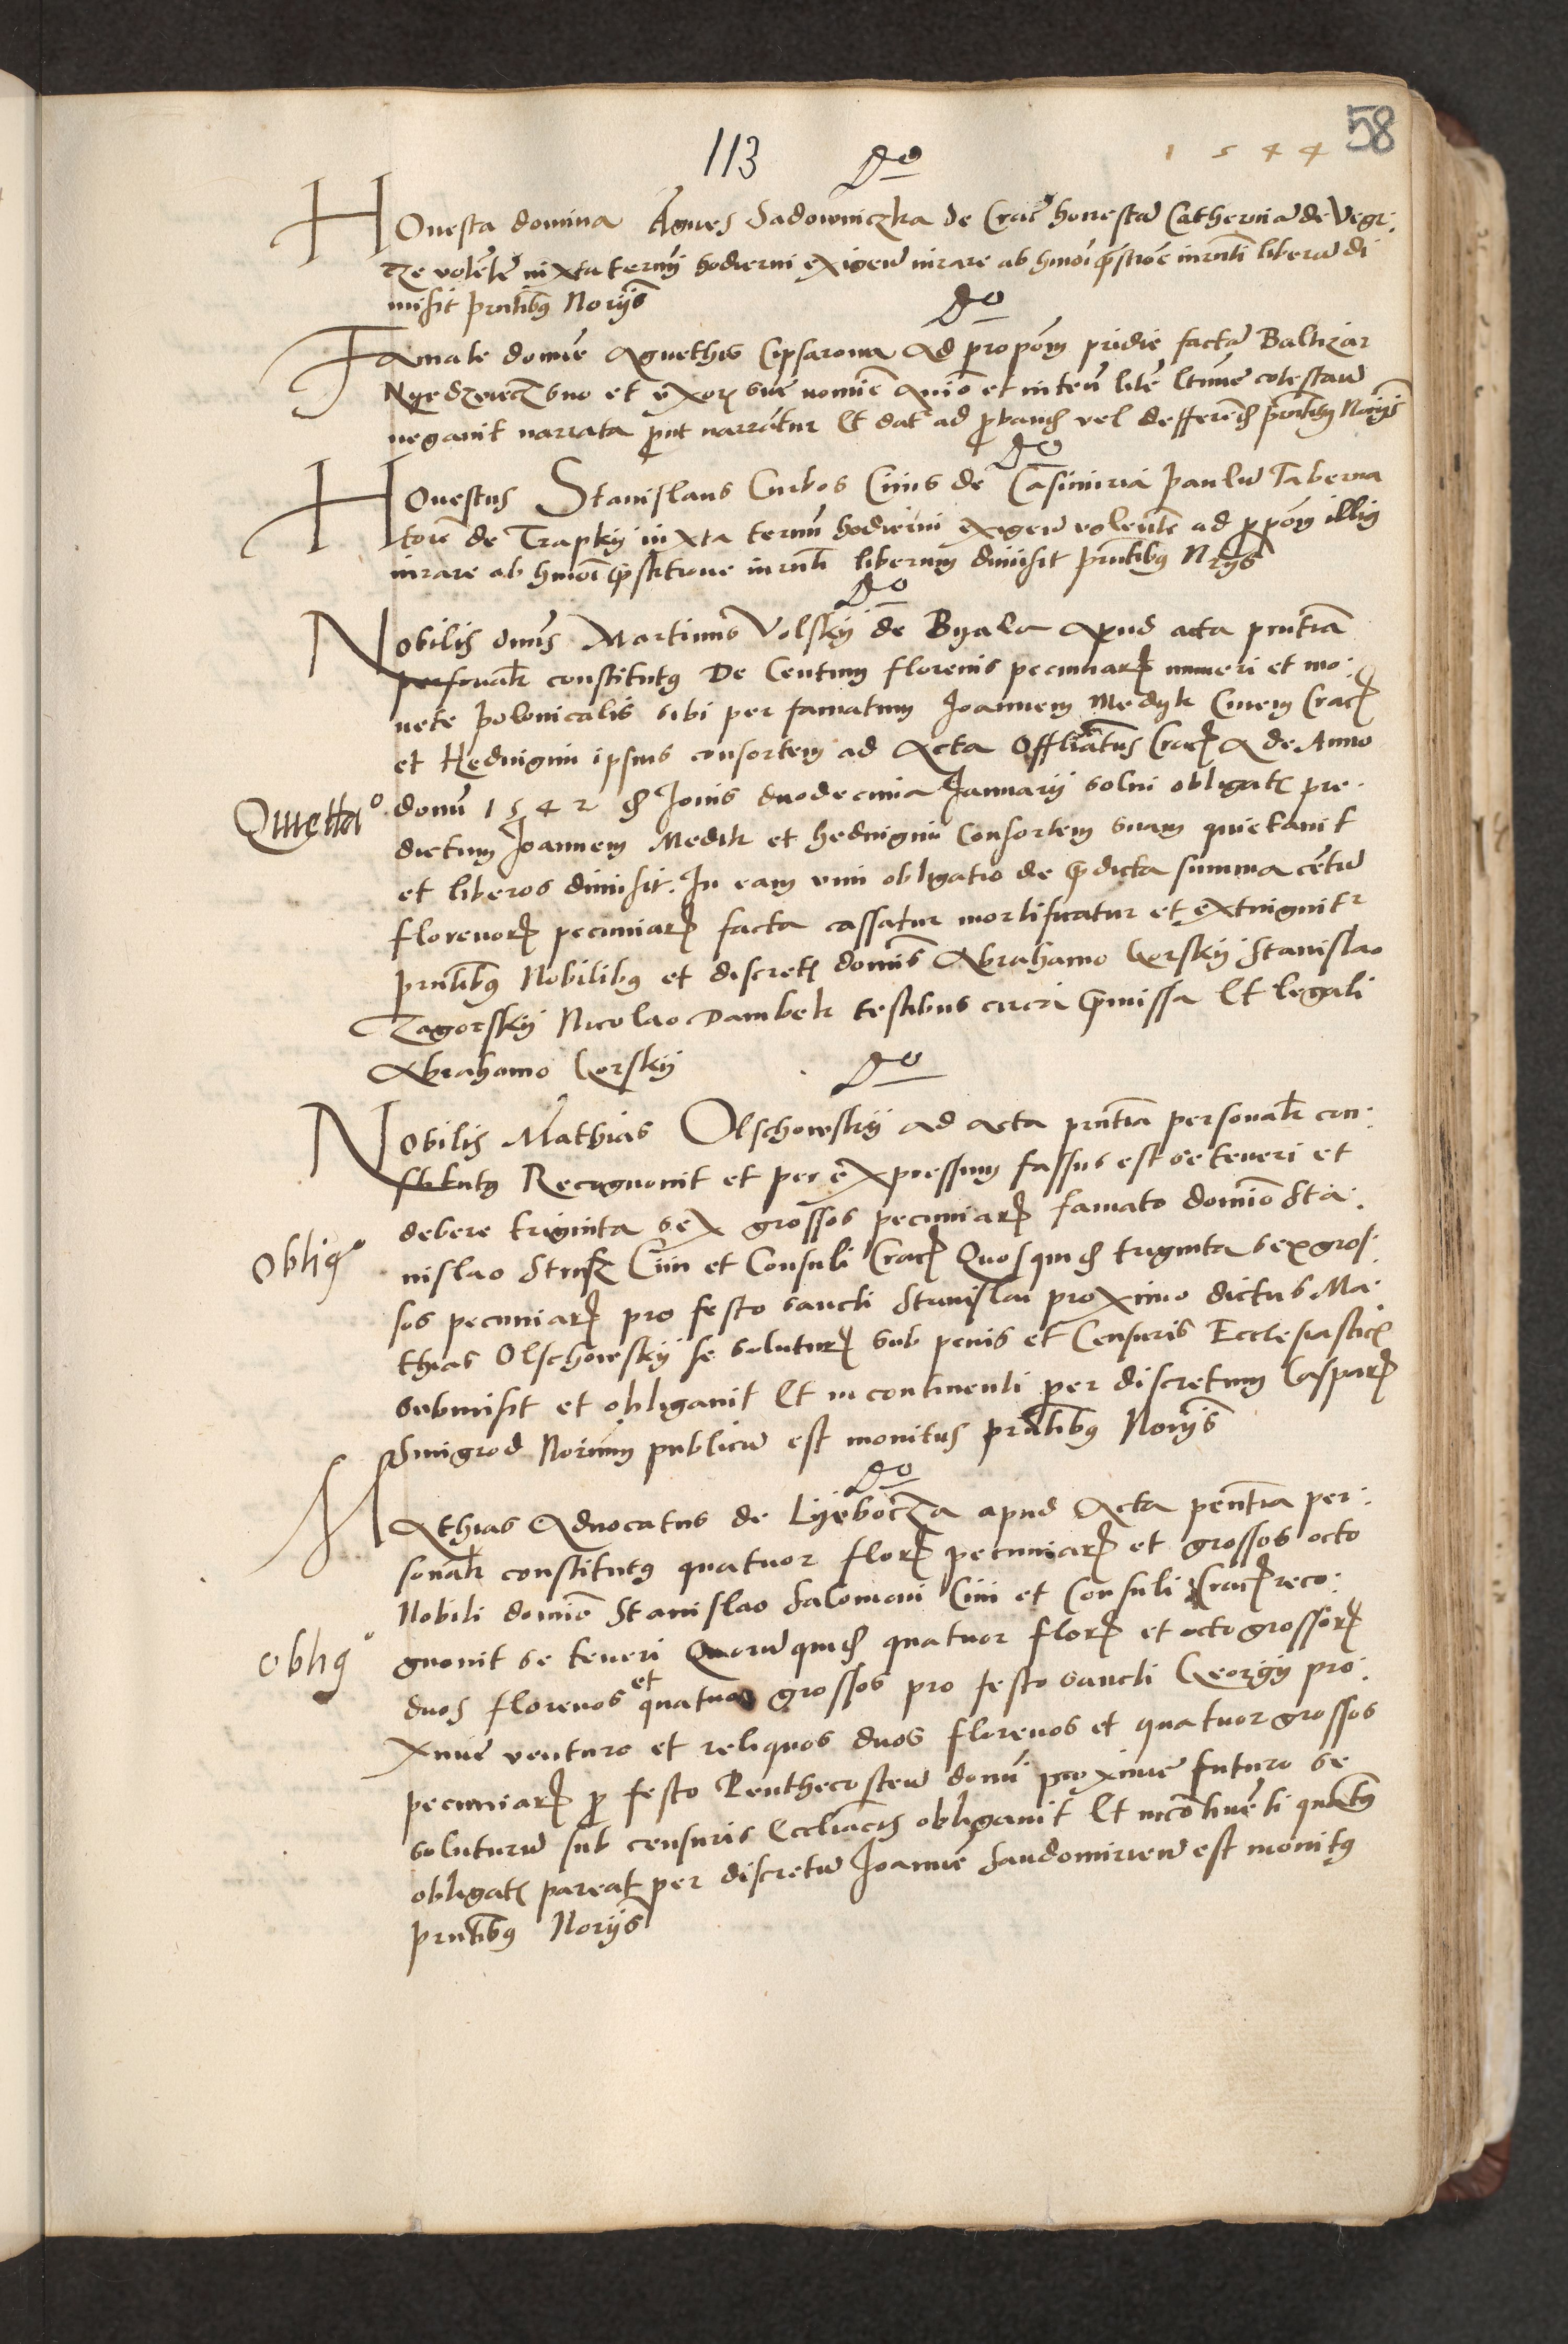 58
113
1544
do
Honesta domina Agnes Sadowniczka de Crac honestã Catherinã de Vegr:
rze volẽtẽ iuxta termĩ hodierni exigen iurare ab hmõi impeticõe liberã di
misit pñtibus Norijs
do
Famate domine Agnethis Cipsarowa ad propõem pridie factã Baltizar
suo et uxoris sue nomine animo et intẽ litẽ ltime cõtestan
negavit narrata prout narrantur Et dat ad proband vel defferend pñtibus Norijs
do
Honestus Stanislaus Curbos Civis de Casimiria Paulũ Taberna
torẽ de Trapky iuxta termĩ hodierni exigen volentẽ ad propõem illius
iurare ab hmõi liberum dimisit pñtibus Nrijs
do
Nobilis dnus Martinus Volsky de Byala apud acta pñtia
personalr constitutus De Centum florenis pecuniar numeri et mo:
nete polonicalis sibi per famatum Joannem Medyk Civem Crac
et Hedvigim ipsius consortem ad Acta Offliatus Crac de Anno
Quietta° domi 1542 die Jovis duodecima Januarij solvi obligatis pre:
dictum Joannem Medik et hedvigim Consortem suam quietavit
et liberos dimisit. In eam vim obligatio de predicta summa cẽtũ
florenor pecuniar facta cassatur mortificatur et extinguitr
pñtibus Nobilibus et discretis dominis Abrahamo Gorsky Stanislao
Zagorsky Nicolao Dambek testibus circa premissa Et legali
Abrahamo Gorsky
do
Nobilis Mathias Olschowsky ad acta pñtia personalr con:
stitutus Recognovit et per expressum fassus est se teneri et
debere triginta sex grossos pecuniar famato domino Sta:
Oblig° nislao Civi et Consuli Crac Quosquid triginta sex gros:
sos pecuniar pro festo sancti Stanislai proximo dictus Ma:
thias Olschowsky se soluturum sub penis et Censuris Ecclesiasticis
submisit et obligavit Et in continenti per discretum Caspar
Smigrod Norium publicũ est monitus pñtibus Norijs
do
Mathias Advocatus de Lyebocza apud Acta pñtia per:
sonalr constitutus quatuor flor pecuniar et grossos octo
Nobili domino Stanislao Salomoni Civi et Consuli Crac reco:
Oblig° gnovit se teneri Quorũquid quatuor flor et octo grossor
duos florenos et quatuor grossos pro festo sancti Georgij pro:
xime venturo et reliquos duos florenos et quatuor grossos
pecuniar pro festo Penthecosten domi proxime futuro se
soluturũ sub censuris Eccliacis obligavit Et incontinenti quatenus
obligatis pareat per discretũ Joannẽ Sandomirien est monitus
pñtibus Norijs